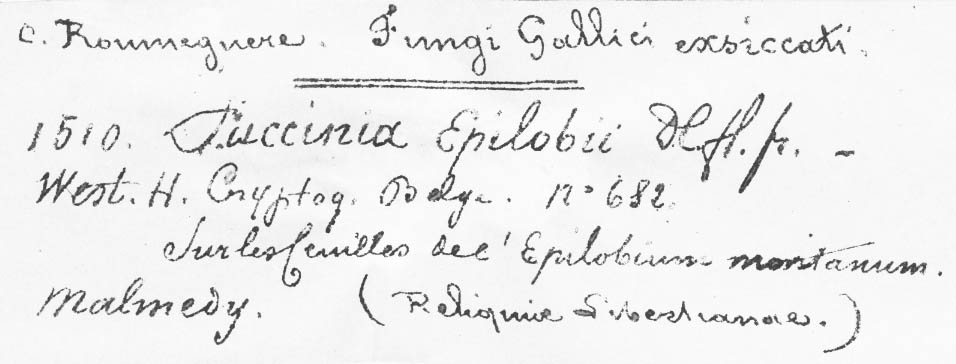 C. Roumeguere. Fungi Gallici exsiccati.
1510. Puccinia Epilobii DC fl. fr. –
West. H. Cryptog. Belge. n° 682.
Sur les feuilles de l'Epilobium montanum.
Malmedy. (Reliquiae Libertianae.)